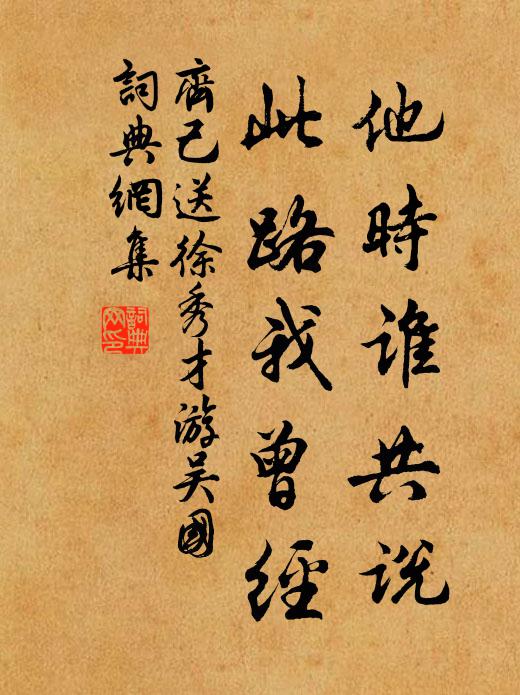 他時誰共説
此路我曾經
齊己送徐秀才游吴國
詞典網集
詞典
网印